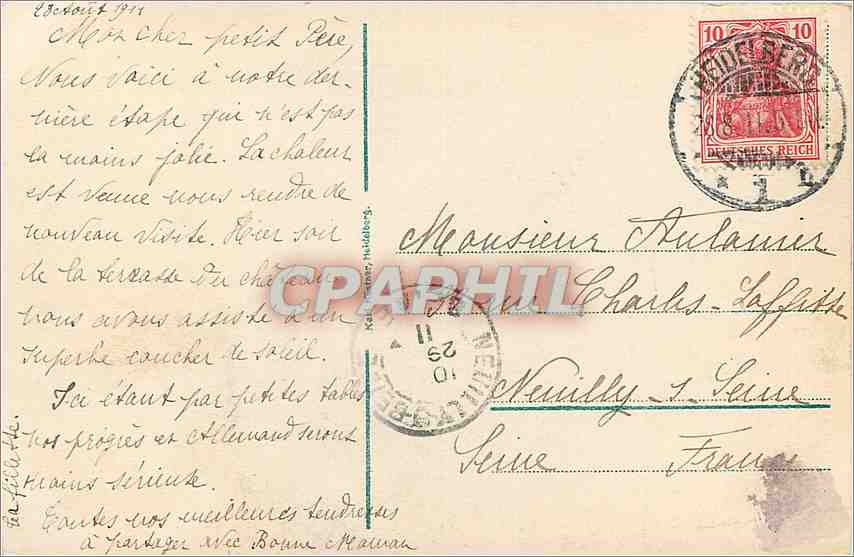 28 Août 1911
Mon cher petit Père,
Nous voici à notre der-
nière étape qui n'est pas
la moins jolie. La chaleur
est venue nous rendre de
nouveau visite. Hier soir
de la terrasse du château
nous avons assisté à un
superbe coucher de soleil.
Ici étant par petites tables
nos progrès en Allemand seront
moins sérieux.
Toutes nos meilleures tendresses
à partager avec Bonne Maman
ta fillette.
10 10
DEUTSCHES REICH
HEIDELBERG
28.8.11.
* 1 L
Heidelberg.
CPAPHIL
NEUILLY-S-SEINE
10
29
11
Monsieur Aulanier
rue Charles-Laffitte
Neuilly-s-Seine
Seine France